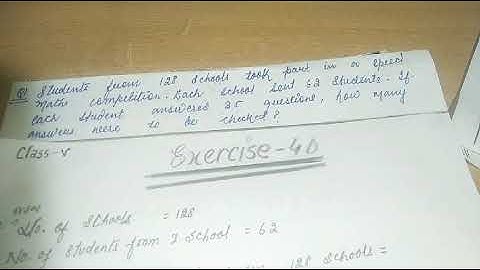 Q1 Students from 128 schools took part in a speed
maths competition. Each school sent 62 students. If
each student answered 25 questions, how many
answers were to be checked?
Class-V
Exercise-4D
No. of Schools = 128
No. of students from 1 School = 62
128 Schools =